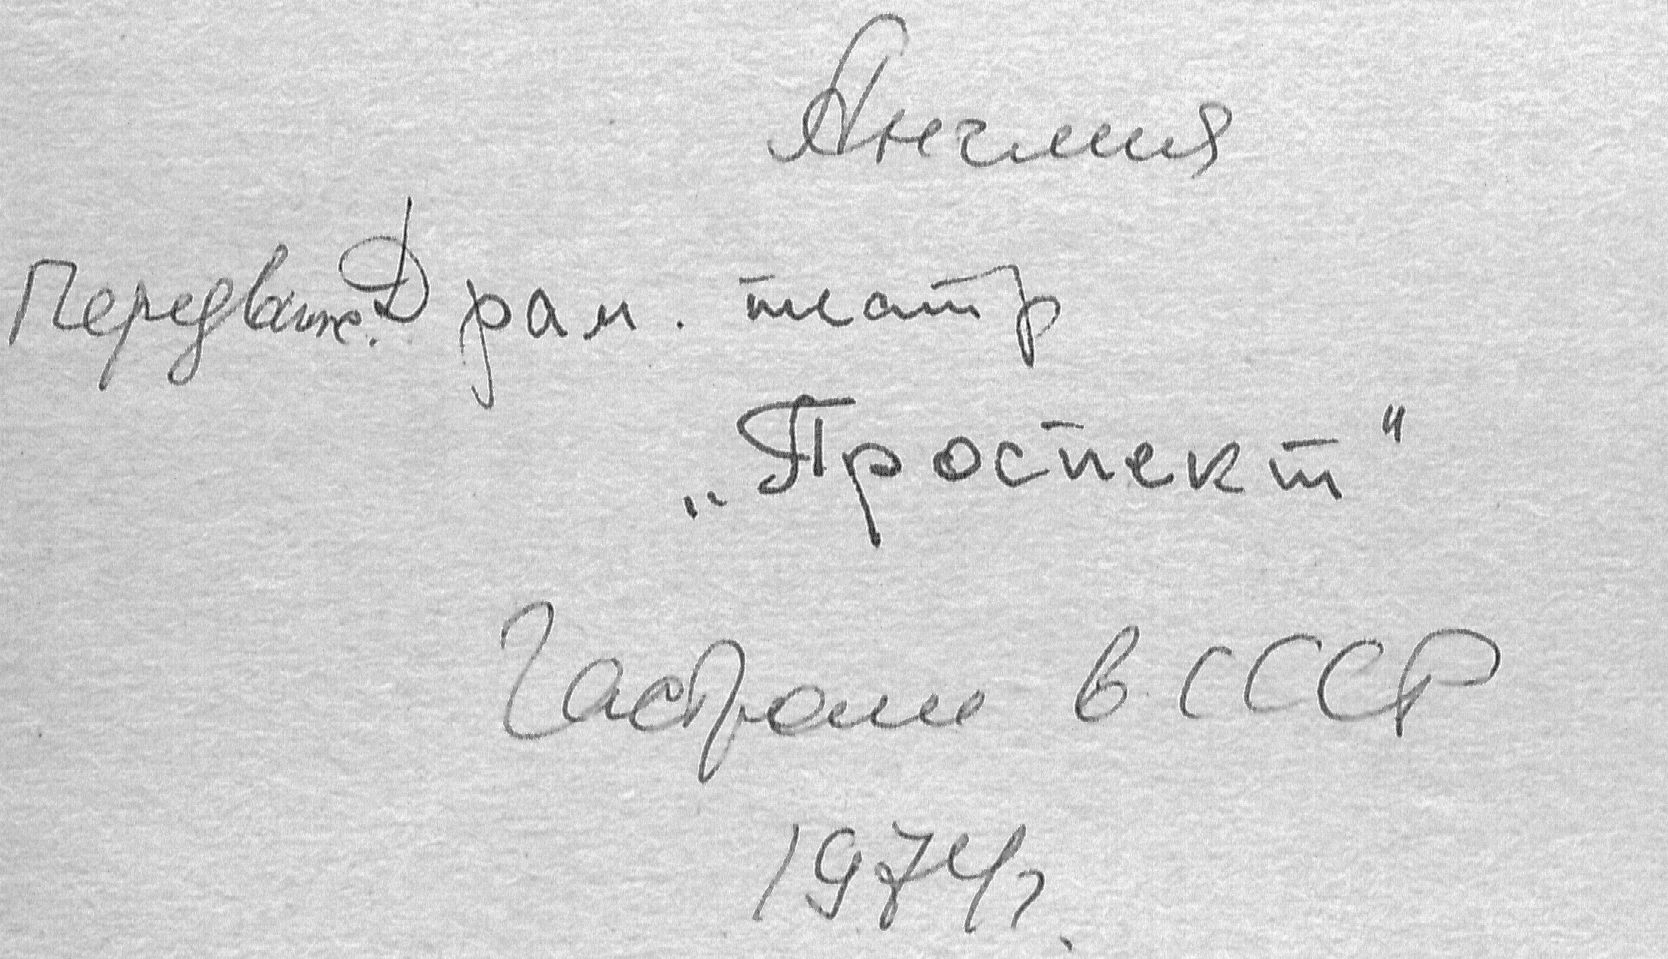 Англия
Передвиж. Драм. театр
„Проспект"
Гастроли в СССР
1974г.